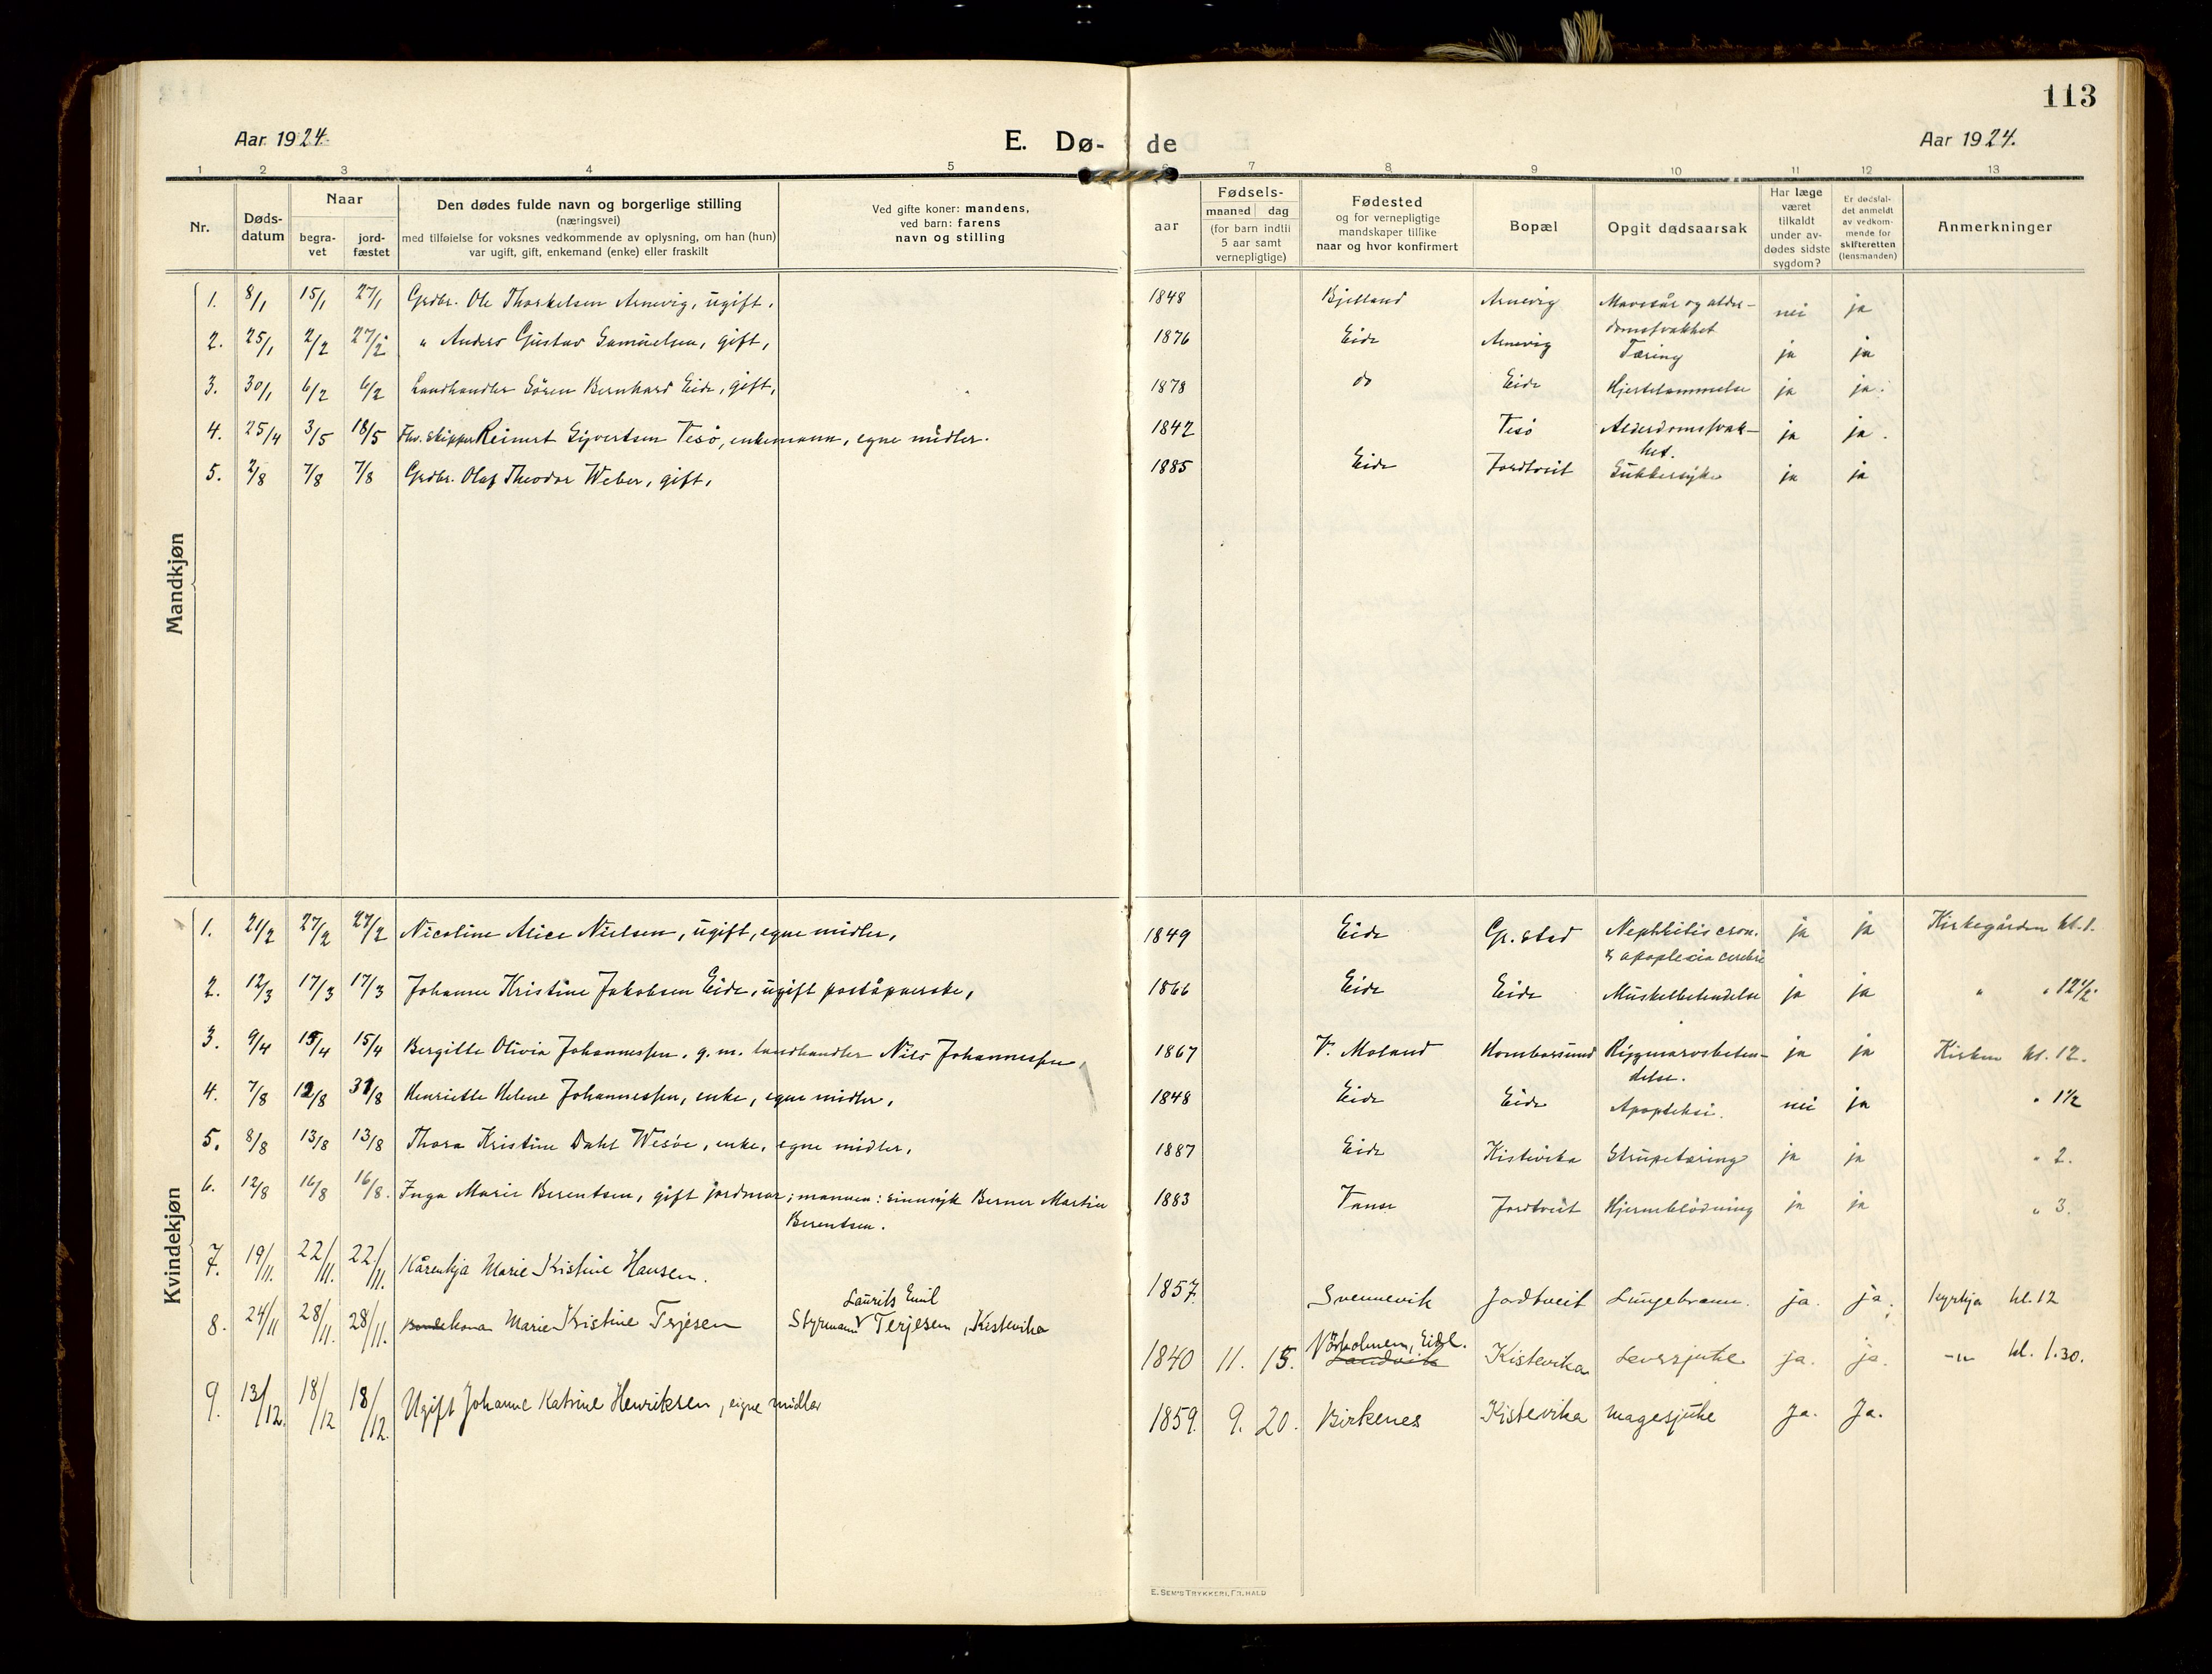 113
Aar 1924.
E. Dø- de
Aar 1924.
1 2 3 4 5 7 8 9 10 11 12 13
Nr.
Døds-
datum
Naar
begra-
vet
jord-
fæstet
Den dødes fulde navn og borgerlige stilling
(næringsvei)
med tilføielse for voksnes vedkommende av oplysning, om han (hun)
var ugift, gift, enkemand (enke) eller fraskilt
Ved gifte koner: mandens,
ved barn: farens
navn og stilling
aar
Fødsels-
maaned dag
(for barn indtil
5 aar samt
vernepligtige)
Fødested
og for vernepligtige
mandskaper tillike
naar og hvor konfirmert
Bopæl
Opgit dødsaarsak
Har læge
været
tilkaldt
under av-
dødes sidste
sygdom?
Er dødsfal-
det anmeldt
av vedkom-
mende for
skifteretten
(lensmanden)
Anmerkninger
Mandkjøn
1. 8/1 15/1 27/1 Grdbr. Ole Thorkelsen Arnevig, ugift. 1848 Bjelland Arnevig Mavesår og alder-
domssvakhet nei ja
2. 25/1 2/2 27/2 " Anders Gustav Samuelsen, gift, 1876 Eide Arnevig Tæring ja ja
3. 30/1 6/2 6/2 Landhandler Sören Bernhard Eide, gift, 1878 do Eide Hjertelammelse ja ja.
4. 25/4 3/5 18/5 Fhv. skipper Reinert Sijvertsen Tesö, enkemann, egne midler. 1842 Tesö Alderdomssvak-
het. ja ja.
5. 2/8 7/8 7/8 Grdbr. Olaf Theodor Weber, gift, 1885 Eide Jordtveit Sukkersyke ja ja
Kvindekjøn
1. 21/2 27/2 27/2 Nicoline Alice Nielsen, ugift, egne midler, 1849 Eide Gr.stad Nephhitis cron.
& apoplexia cerebri ja ja Kirkegården kl. 1.
2. 12/3 17/3 17/3 Johanne Kristine Jakobsen Eide, ugift poståpnerske, 1866 Eide Eide Muskelbetendelse ja ja " " 12 1/2.
3. 9/4 15/4 15/4 Bergitte Olivia Johannessen, g. m. landhandler Nils Johannessen, 1867 V. Moland Homborsund Rygmarvsbeten-
delse. ja ja Kirken kl. 12.
4. 7/8 12/8 31/8 Henriette Helene Johannessen, enke, egne midler, 1848 Eide Eide Apopleksi. nei ja " 1 1/2
5. 8/8 13/8 13/8 Thora Kristine Dahl Wesöe, enke, egne midler, 1887 Eide Kistevika Strupetæring ja ja " 2.
6. 12/8 16/8 16/8. Inga Marie Berentsen, gift jordmor; mannen: sinnsyk Berner Martin
Berentsen. 1883 Vanse Jordtveit Hjerneblödning ja ja " 3.
7. 19/11. 22/11. 22/11. Kårenkja Marie Kristine Hansen. 1857. Svennevik Jodtveit Lungebrann. ja. ja. kyrkja kl. 12
8. 24/11 28/11. 28/11. kona Marie Kristine Terjesen Laurits Emil
Styrmann Terjesen, Kistevika 1840 11. 15. Nörholmen, Eide.
Landvik Kistevika Leversjuke ja. ja. -"- kl. 1.30.
9. 13/12. 18/12 18/12. Ugift Johanne Katrine Henriksen, eigne midlar 1859. 9. 20. Birkenes Kistevika magesjuke Ja. Ja.
E. SEM'S TRYKKERI, FR. HALD